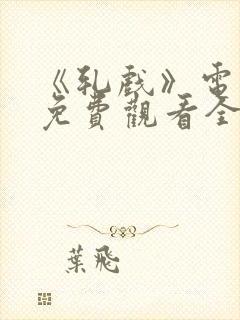 《乳戲》電
免費觀看全
葉飛